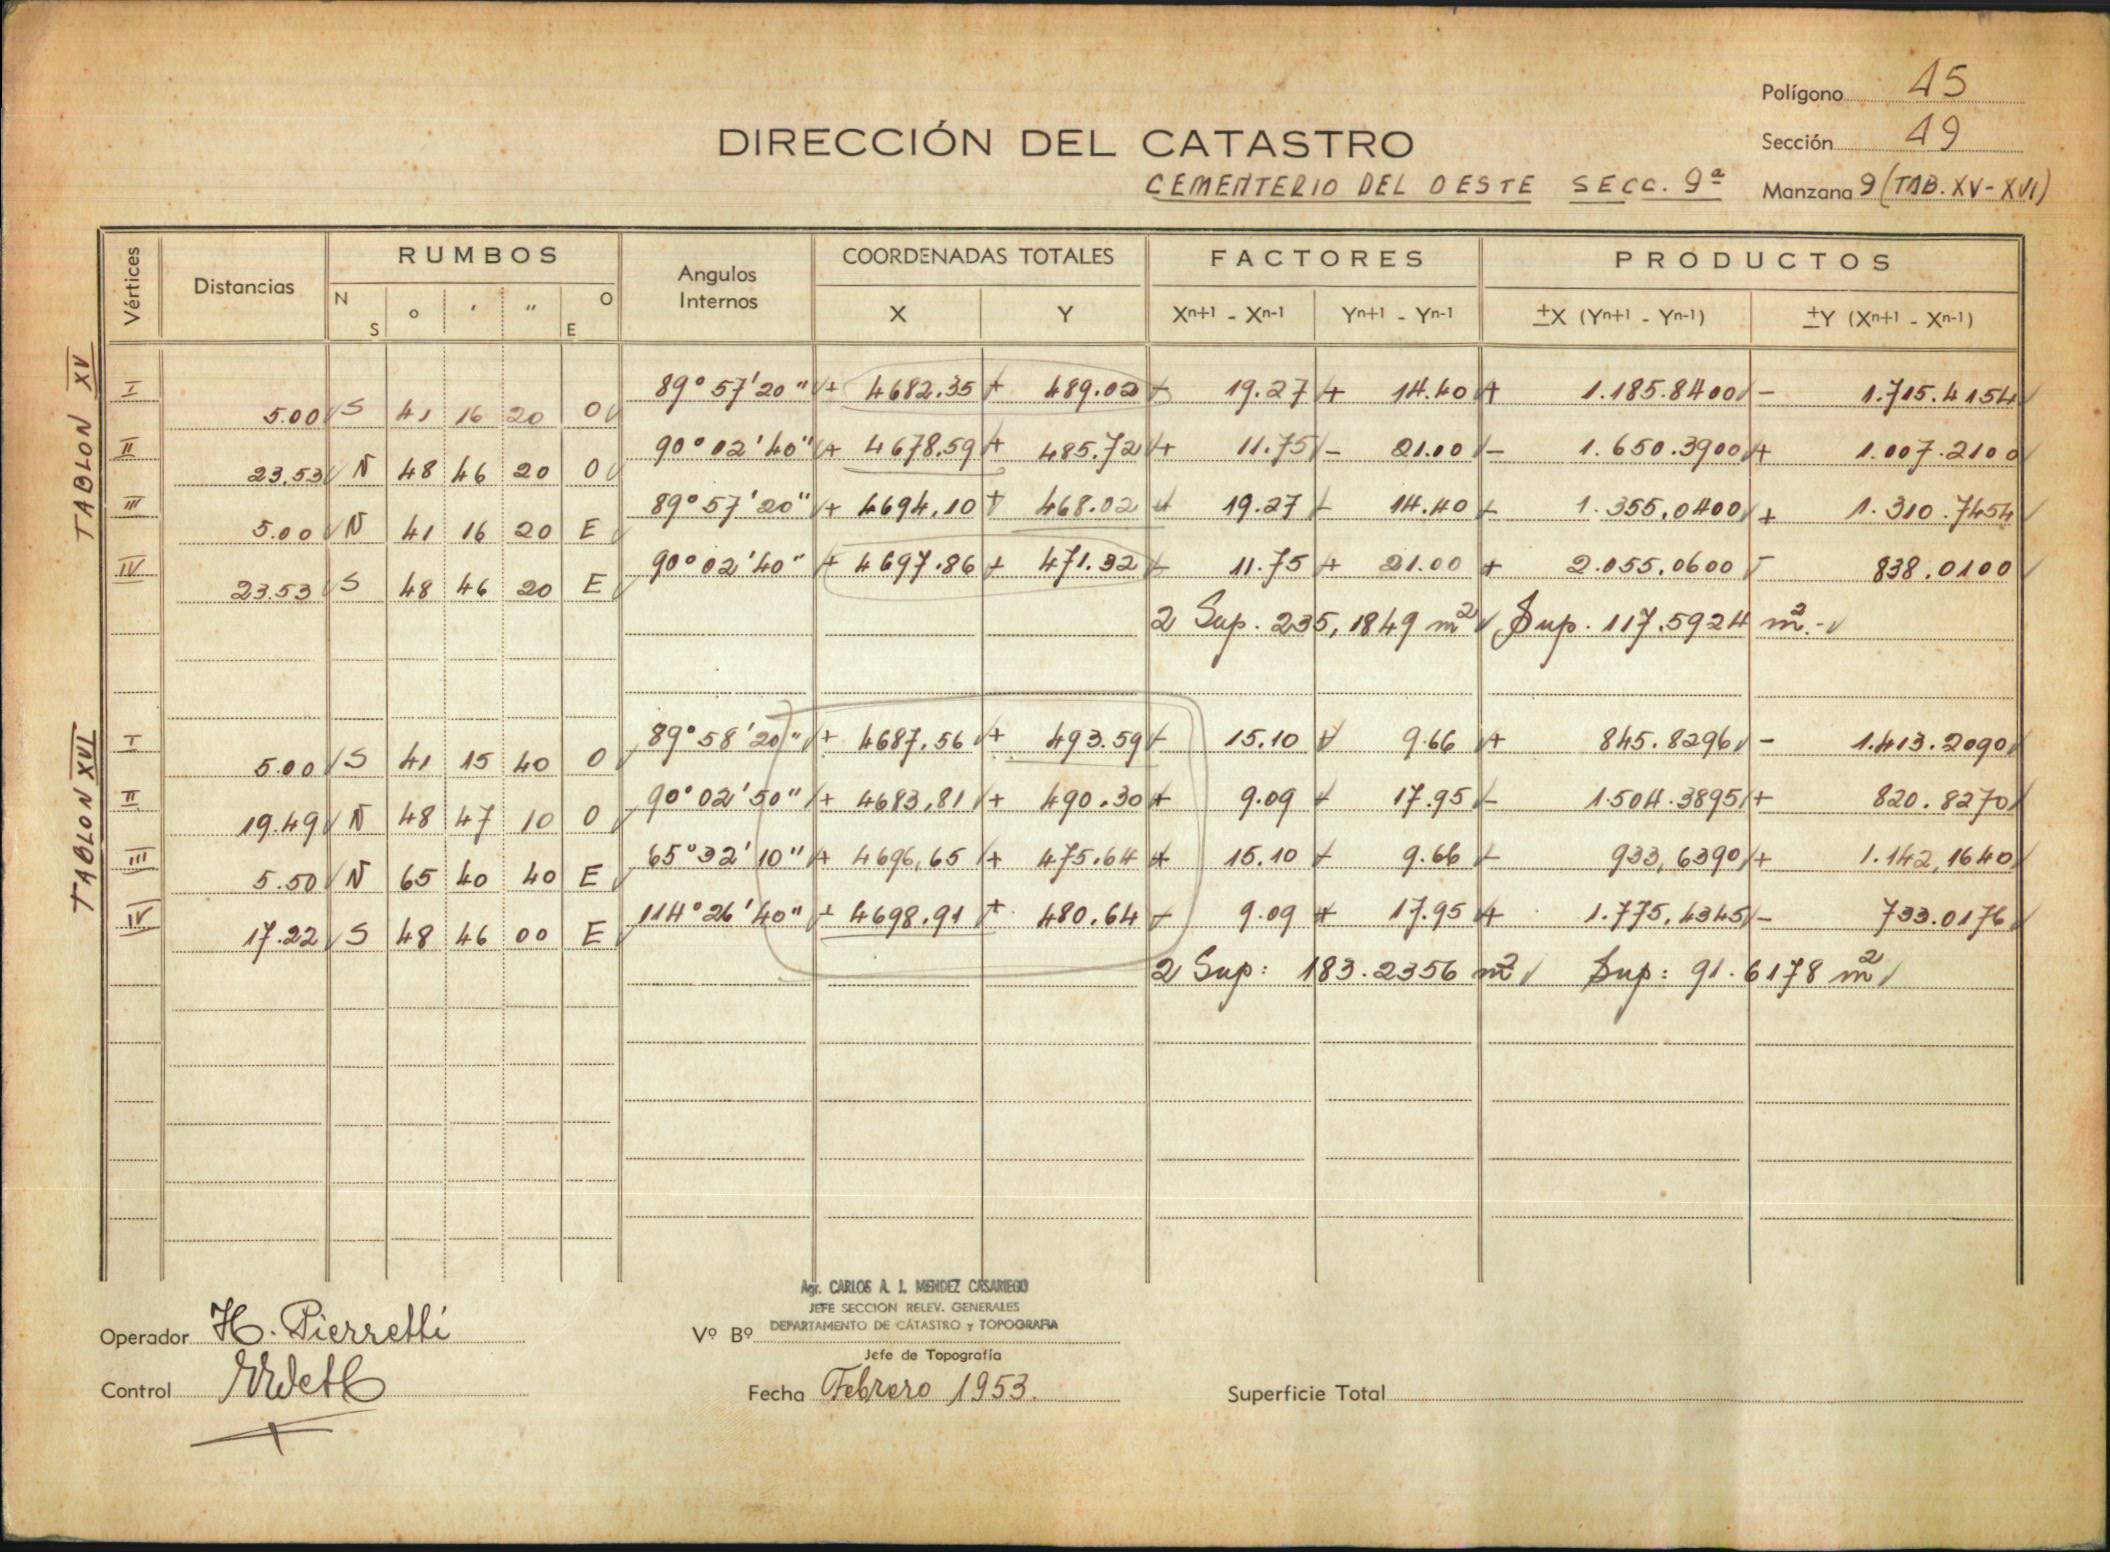 Polígono 45
DIRECCIÓN DEL CATASTRO
Sección 49
CEMENTERIO DEL OESTE SECC. 9ª Manzana 9 (TAB. XV - XVI)
Vértices Distancias RUMBOS Angulos Internos COORDENADAS TOTALES FACTORES PRODUCTOS
N S ° ' " O E X Y Xn+1 - Xn-1 Yn+1 - Yn-1 ±X (Yn+1 - Yn-1) ±Y (Xn+1 - Xn-1)
TABLON XV
I 89° 57' 20" + 4682.35 + 489.02 - 19.27 + 14.40 + 1.185.8400 - 1.715.4154
5.00 S 41 16 20 O
II 90° 02' 40" + 4678.59 + 485.72 + 11.75 - 21.00 - 1.650.3900 + 1.007.2100
23.53 N 48 46 20 O
III 89° 57' 20" + 4694.10 + 468.02 + 19.27 - 14.40 - 1.355.0400 + 1.310.7454
5.00 N 41 16 20 E
IV 90° 02' 40" + 4697.86 + 471.32 - 11.75 + 21.00 + 2.055.0600 - 838.0100
23.53 S 48 46 20 E
2 Sup. 235,1849 m² Sup. 117.5924 m².-
TABLON XVI
I 89° 58' 20" + 4687.56 + 493.59 - 15.10 + 9.66 + 845.8296 - 1.413.2090
5.00 S 41 15 40 O
II 90° 02' 50" + 4683.81 + 490.30 + 9.09 - 17.95 - 1.504.3895 + 820.8270
19.49 N 48 47 10 O
III 65° 32' 10" + 4696,65 + 475.64 + 15.10 - 9.66 - 933,6390 + 1.142,1640
5.50 N 65 40 40 E
IV 114° 26' 40" + 4698.91 + 480.64 - 9.09 + 17.95 + 1.775,4345 - 733.0176
17.22 S 48 46 00 E
2 Sup: 183.2356 m² Sup: 91.6178 m²
Agr. CARLOS A. I. MENDEZ CASARIEGO
JEFE SECCION RELEV. GENERALES
DEPARTAMENTO DE CATASTRO y TOPOGRAFIA
Operador H. Pierretti Vº Bº
Jefe de Topografía
Control Fecha Febrero 1953. Superficie Total